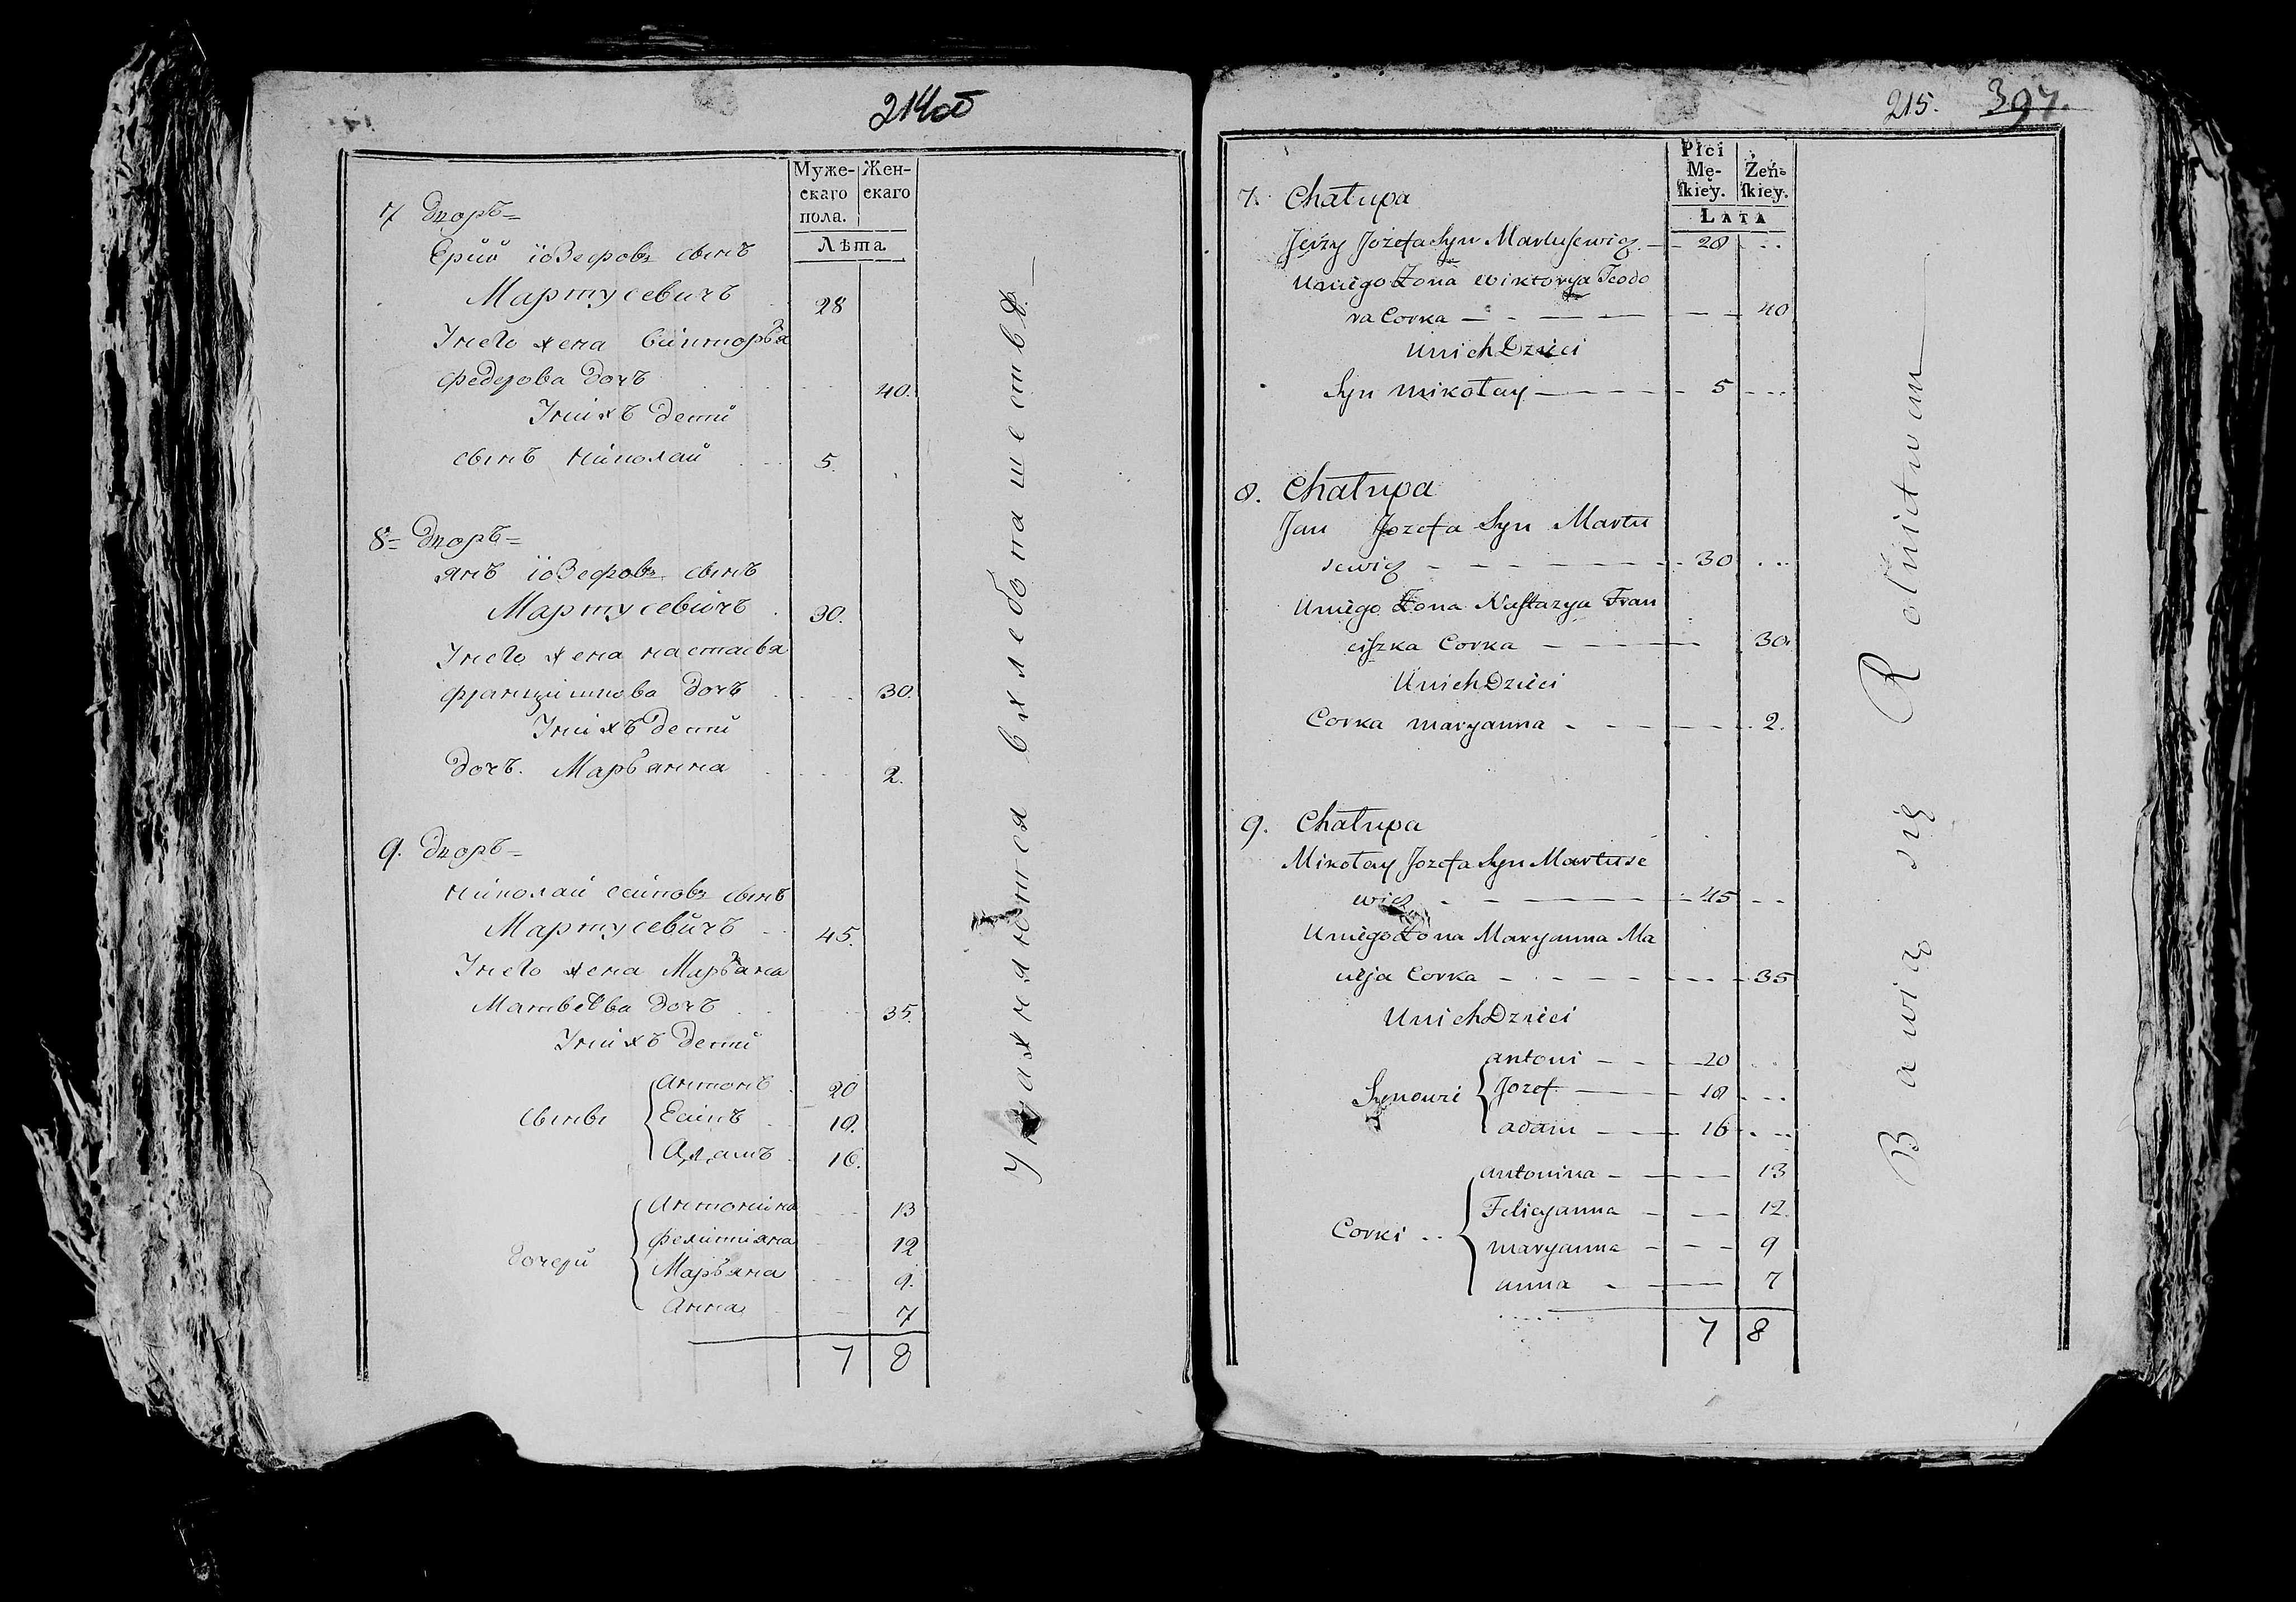 214об
Муже- Жен-
скаго скаго
пола.
Лѣта
7 Дворъ =
Ерiй iозефовъ сынъ
Мартусевичъ 28
Унего жена викторья
федерова дочъ 40.
Унихъ дети
сынъ николай 5.
8 = Дворъ =
янъ iозефовъ сынъ
Мартусевичъ 30.
Унего жена настасья
францишкова дочъ 30.
Унихъ дети
дочъ. Марьянна 2.
9. Дворъ =
николай есиповъ сынъ
Мартусевичъ 45.
Унего жена Марьяна
Матвеева дочъ 35.
Унихъ дети
сыны
Антонъ 20
Есипъ 18.
Адамъ 16.
дочери
Антонина 13
фелицияна 12
Марьяна 9.
Анна 7
7 8
Упражняются в хлебопашестве
215. 397.
Płci
Mę- Żeń-
ſkiey. ſkiey.
LATA
7. Chałupa
Jerzy Jozefa Syn Martusewicz 28
Uniego Żona Wiktorya Teodo
ra Corka 40
Unich Dzieci
Syn Mikołay 5
8. Chałupa
Jan Jozefa Syn Martu
sewicz 30
Uniego Żona Nastazya Fran
ciszka Corka 30
Unich Dzieci
Corka Maryanna 2.
9. Chałupa
Mikołay Jozefa Syn Martuse
wicz 45
Uniego Żona Maryanna Ma
cieja Corka 35
Unich Dzieci
Synowie
antoni 20
Jozef 18
adam 16
Corki
antonina 13
Felicyanna 12
maryanna 9
anna 7
7 8
Bawią się Rolnictwem